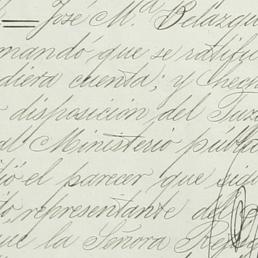 José M.ª Velázqu
mandó que se ratific
diera cuenta; y hech
disposición del Juz
al Ministerio públi
ió el parecer que
to, representante del
que la Señora Re